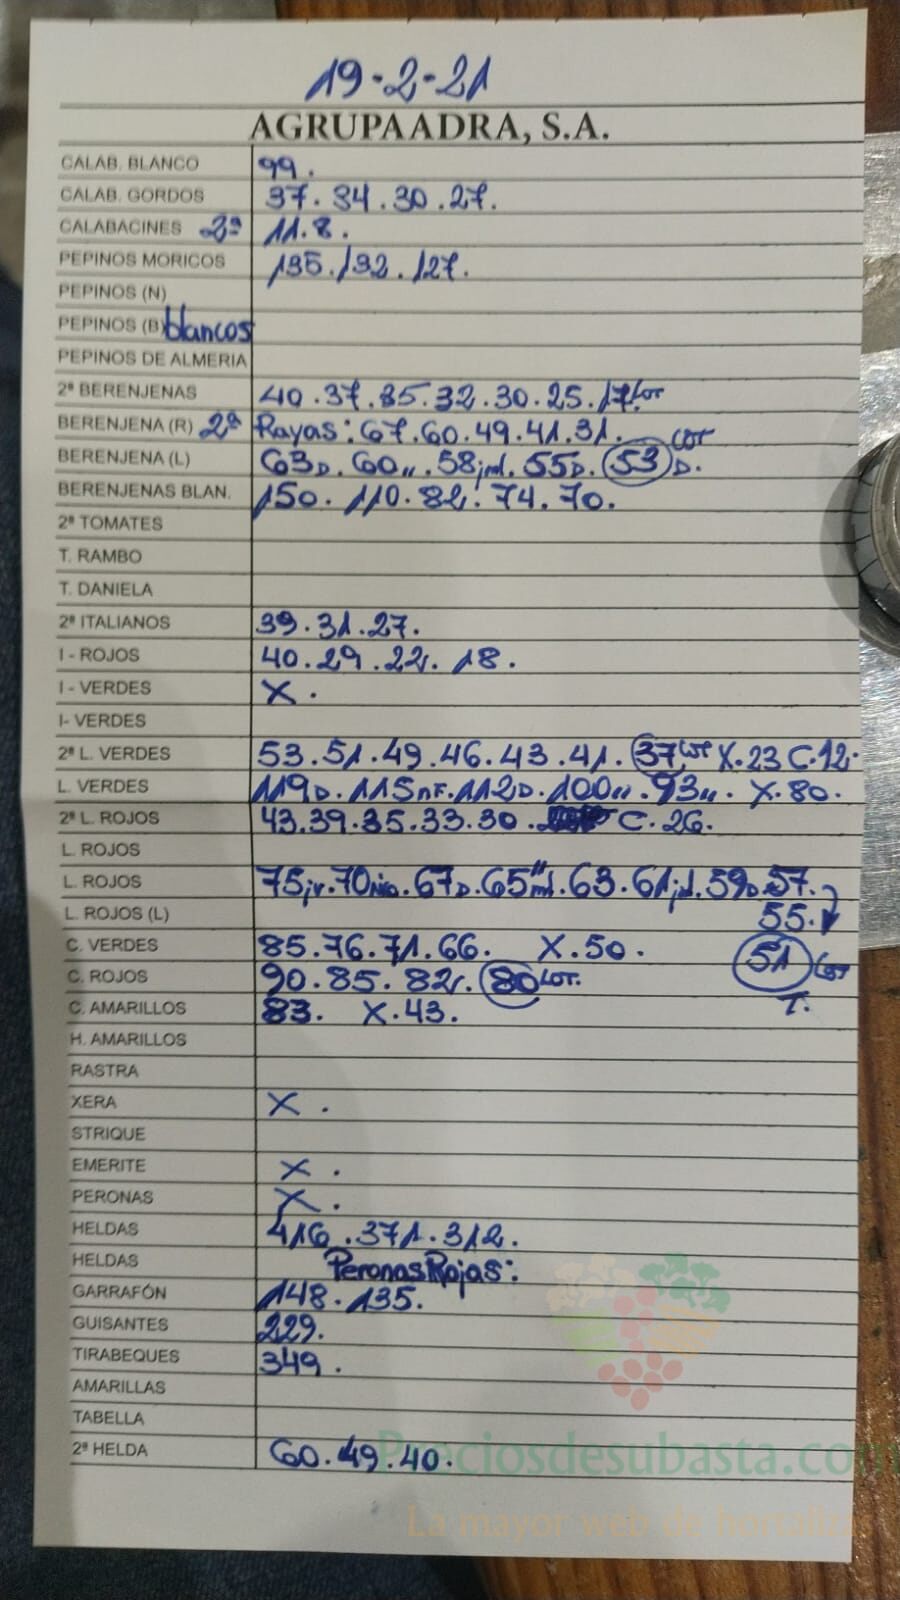 19-2-21
AGRUPAADRA, S.A.
CALAB. BLANCO 99.
CALAB. GORDOS 37. 34. 30. 27.
CALABACINES 2ª 11. 8.
PEPINOS MORICOS 135. 132. 127.
PEPINOS (N)
PEPINOS (B) blancos
PEPINOS DE ALMERIA
2ª BERENJENAS 40. 37. 35. 32. 30. 25. 17. LOT
BERENJENA (R) 2ª Rayas: 67. 60. 49. 41. 31.
BERENJENA (L) 63D. 60,,. 58jd. 55D. 53 LOT D.
BERENJENAS BLAN. 150. 110. 82. 74. 70.
2ª TOMATES
T. RAMBO
T. DANIELA
2ª ITALIANOS 39. 31. 27.
I - ROJOS 40. 29. 22. 18.
I - VERDES X.
I- VERDES
2ª L. VERDES 53. 51. 49. 46. 43. 41. 37 LOT X. 23 C. 12.
L. VERDES 119D. 115nF. 112D. 100,,. 93,,. X. 80.
2ª L. ROJOS 43. 39. 35. 33. 30. C. 26.
L. ROJOS
L. ROJOS 75jv. 70 67D. 65 63. 61jd. 59D. 57.
L. ROJOS (L) 55.
C. VERDES 85. 76. 71. 66. X. 50. 51 LOT
C. ROJOS 90. 85. 82. 80 LOT. T.
C. AMARILLOS 83. X. 43.
H. AMARILLOS
RASTRA
XERA X.
STRIQUE
EMERITE X.
PERONAS X.
HELDAS 416. 371. 312.
HELDAS Peronas Rojas:
GARRAFÓN 148. 135.
GUISANTES 229.
TIRABEQUES 349.
AMARILLAS
TABELLA
2ª HELDA 60. 49. 40.
Preciosdesubasta.com
La mayor web de hortalizas